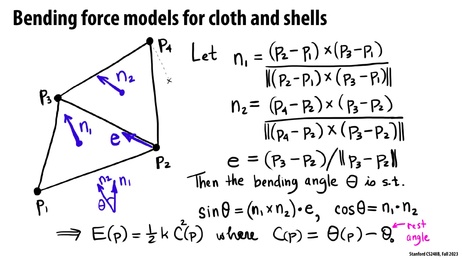 Bending force models for cloth and shells
Let n₁ = (p₂-p₁)×(p₃-p₁) / ‖(p₂-p₁)×(p₃-p₁)‖
n₂ = (p₄-p₂)×(p₃-p₂) / ‖(p₄-p₂)×(p₃-p₂)‖
e = (p₃-p₂)/‖p₃-p₂‖
Then the bending angle θ is s.t.
sinθ = (n₁×n₂)·e, cosθ = n₁·n₂
⟹ E(p) = ½ k C²(p) where C(p) = θ(p) - θ₀
rest
angle
p₄
n₂
p₃
n₁
e
p₂
n₂ n₁
θ
p₁
Stanford CS248B, Fall 2023